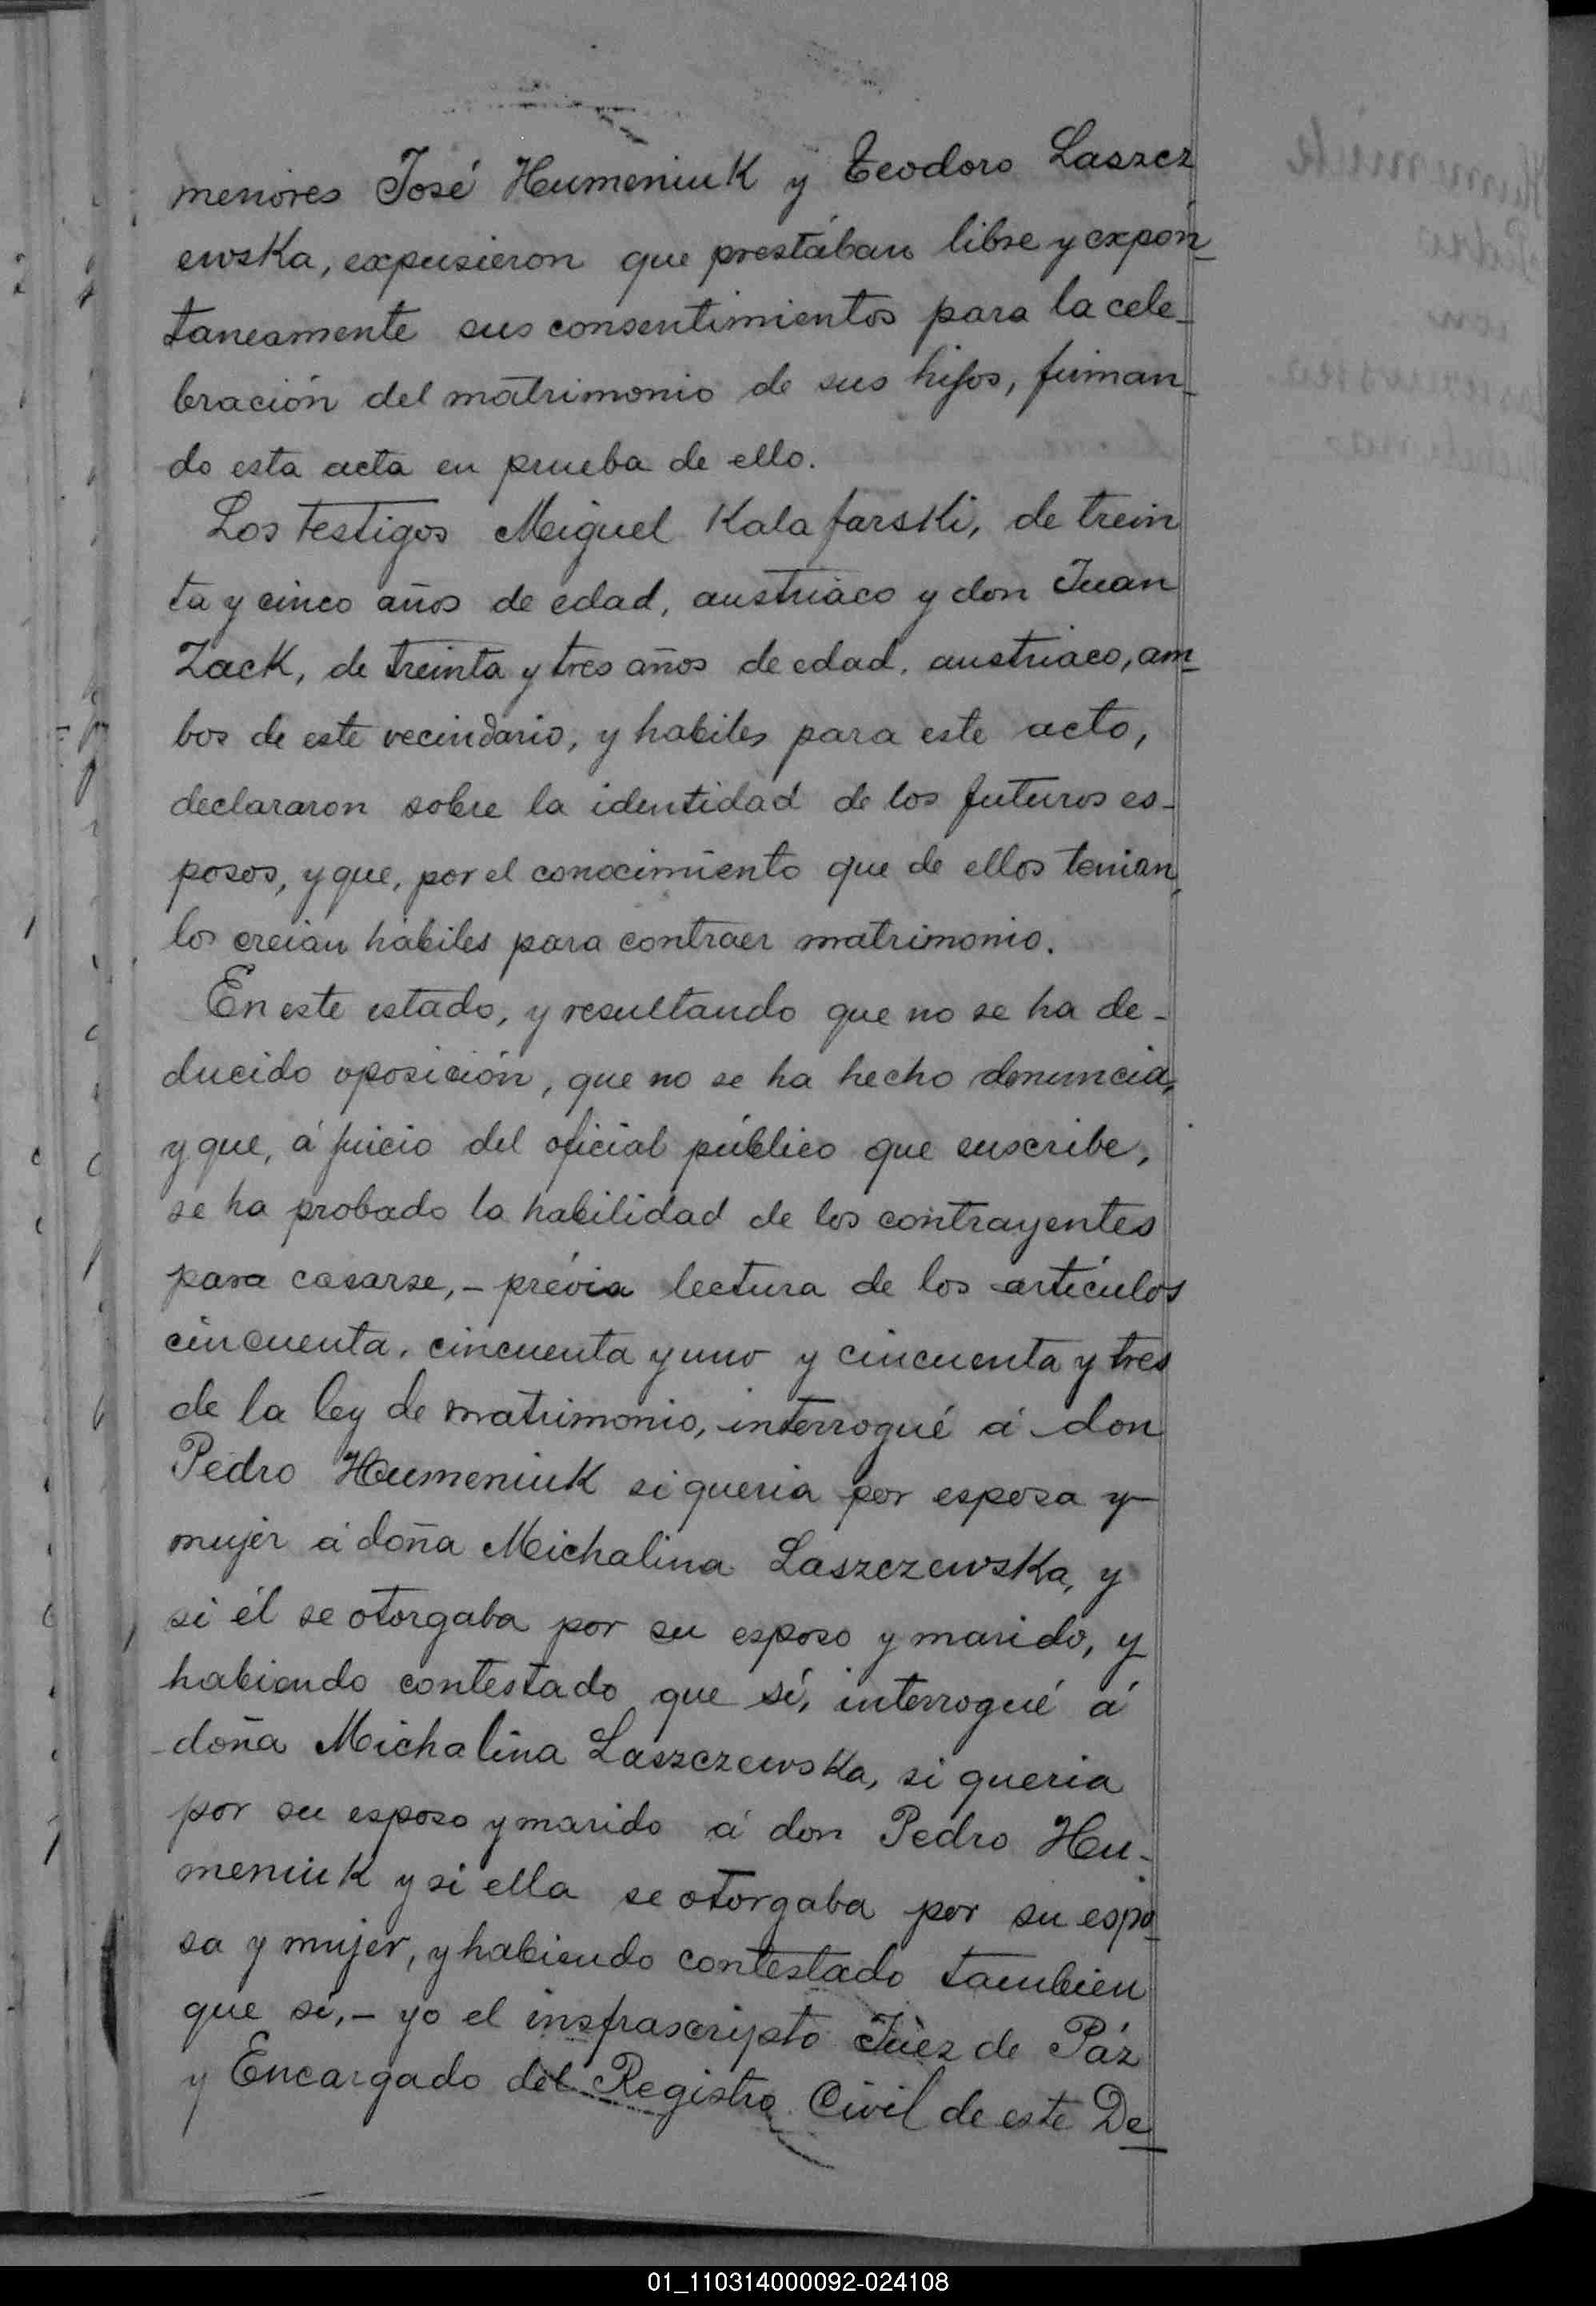 menores José Humeniuk y Teodoro Laszcz
ewska, expusieron que prestában libre y expón-
taneamente sus consentimientos para la cele-
bración del matrimonio de sus hijos, firman-
do esta acta en prueba de ello.
Los testigos Miguel Kalafarski, de trein
ta y cinco años de edad, austriaco y don Juan
Zack, de treinta y tres años de edad, austriaco, am-
bos de este vecindario, y habiles para este acto,
declararon sobre la identidad de los futuros es-
posos, y que, por el conocimiento que de ellos tenian,
los creian hábiles para contraer matrimonio.
En este estado, y resultando que no se ha de-
ducido oposición, que no se ha hecho denuncia,
y que, á juicio del oficial público que suscribe,
se ha probado la habilidad de los contrayentes
para casarse, - prévia lectura de los artículos
cincuenta, cincuenta y uno y cincuenta y tres
de la ley de matrimonio, interrogué á don
Pedro Humeniuk si queria por esposa y
mujer á doña Michalina Laszczewska, y
si él se otorgaba por su esposo y marido, y
habiendo contestado que sí, interrogué á
doña Michalina Laszczewska, si queria
por su esposo y marido á don Pedro Hu-
meniuk y si ella se otorgaba por su espo-
sa y mujer, y habiendo contestado tambien
que si, - yo el insfrascripto Juez de Páz
y Encargado del Registro Civil de este De-
Humeniuk
Pedro
con
01_110314000092-024108